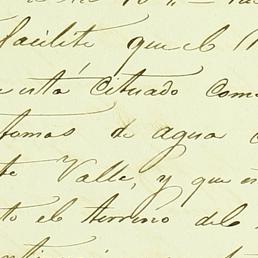 facilite que el
está cituado com
tomas de agua
te Valle, y que en
to el terreno del